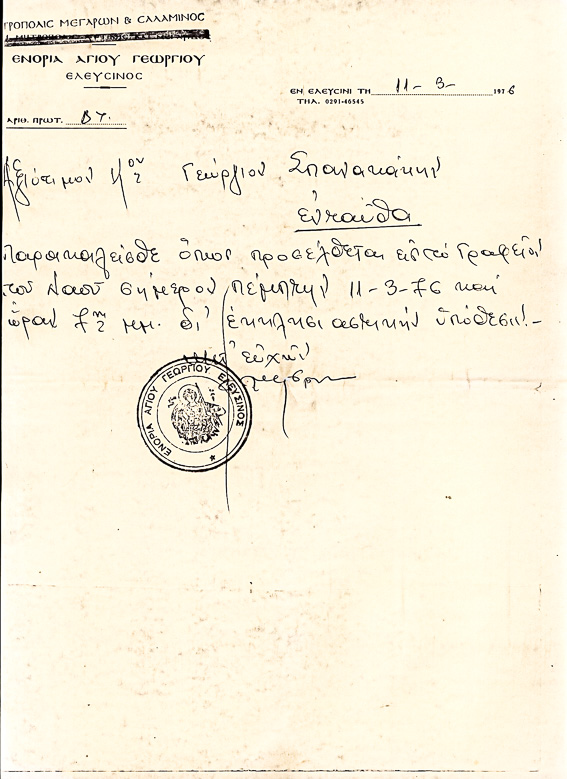 ΤΡΟΠΟΛΙΣ ΜΕΓΑΡΩΝ & ΣΑΛΑΜΙΝΟΣ
ΕΝΟΡΙΑ ΑΓΙΟΥ ΓΕΩΡΓΙΟΥ
ΕΛΕΥΣΙΝΟΣ
ΕΝ ΕΛΕΥΣΙΝΙ ΤΗ 11-3- 1976
ΤΗΛ. 0291-46545
ΑΡΙΘ. ΠΡΩΤ. ΔΥ.
Ἀξιότιμον Κον Γεώργιον Σπανακάκην
ἐνταῦθα
παρακαλεῖσθε ὅπως προσέλθεται εἰς τό Γραφεῖον
τοῦ Ναοῦ σήμερον Πέμπτην 11-3-76 καί
ὥραν 7ην μμ. δι' ἐκκλησιαστικήν ὑπόθεσιν.-
μετ' εὐχῶν
ΕΝΟΡΙΑ ΑΓΙΟΥ ΓΕΩΡΓΙΟΥ ΕΛΕΥΣΙΝΟΣ